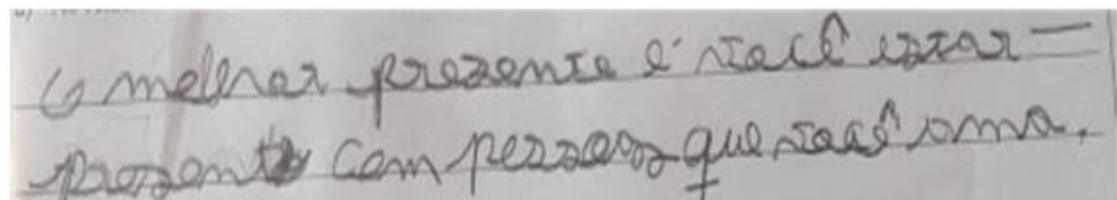 O melhor prezente é você estar
prezente com pessoas que você ama.